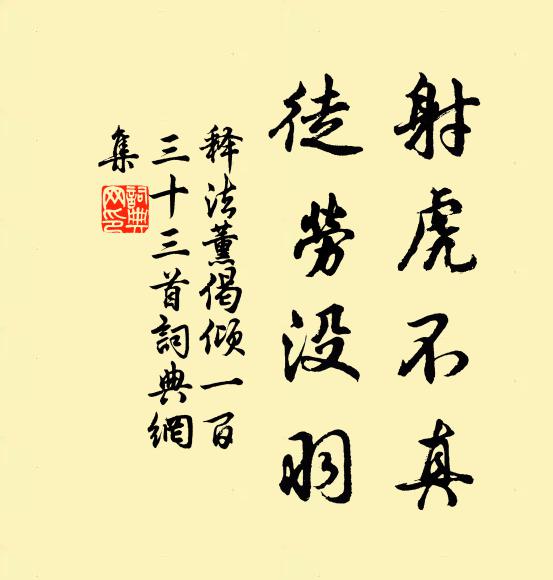 射虎不真
徒勞没羽
释法薰偈倾一百
三十三首詞典網
集
詞典網印